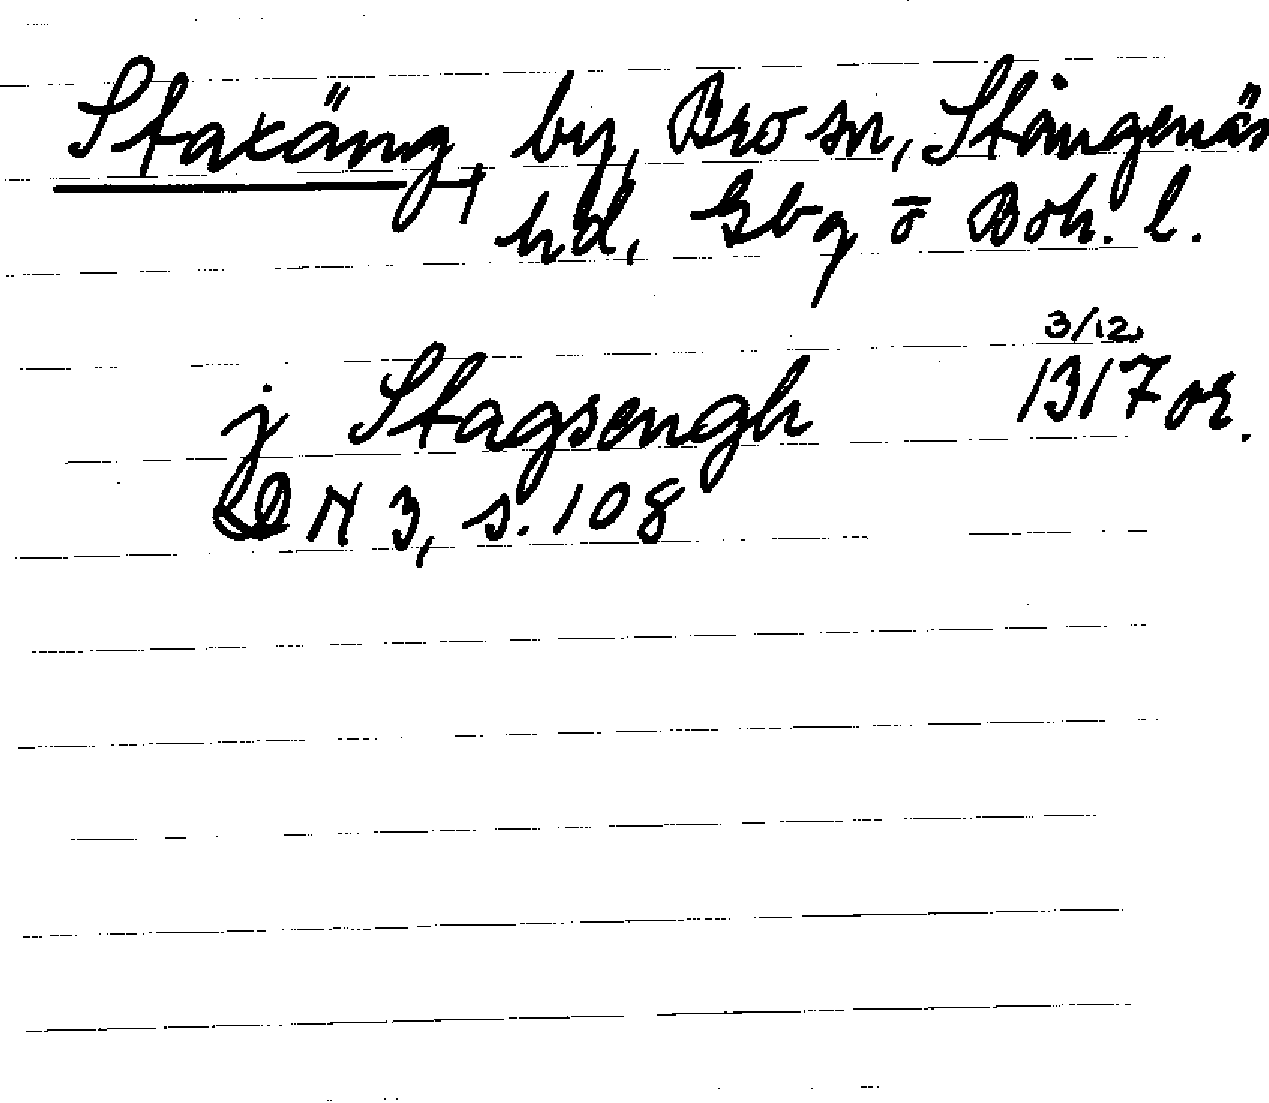 Staxäng, by, Bro sn, Stångenäs
hd, Gbg o Boh. l.
3/12
j Stagsengh 1317 or.
DN 3, s. 108